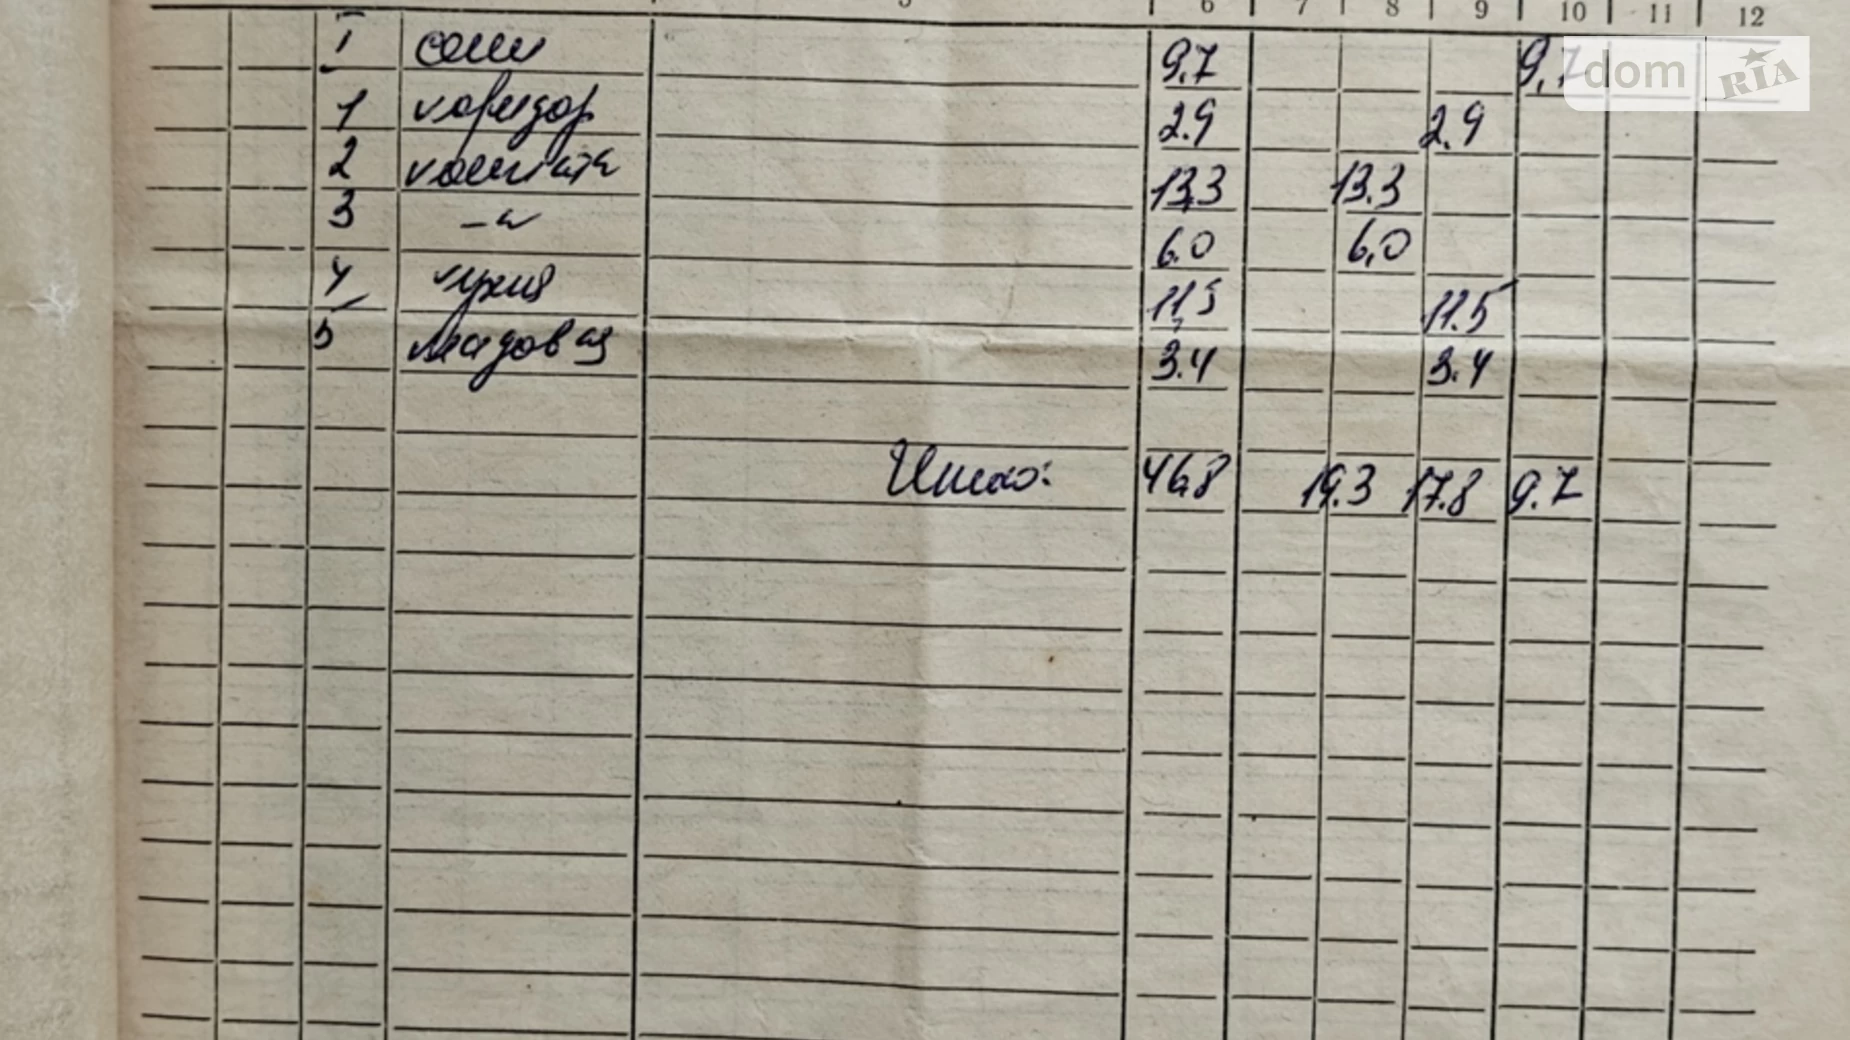 5 6 7 8 9 10 11 12
I сени 9,7 9,7
1 коридор 2.9 2.9
2 комната 13,3 13.3
3 -"- 6.0 6,0
4 кухня 11,5 11.5
5 кладовая 3.4 3.4
Итого: 46,8 19.3 17.8 9.7
dom RIA